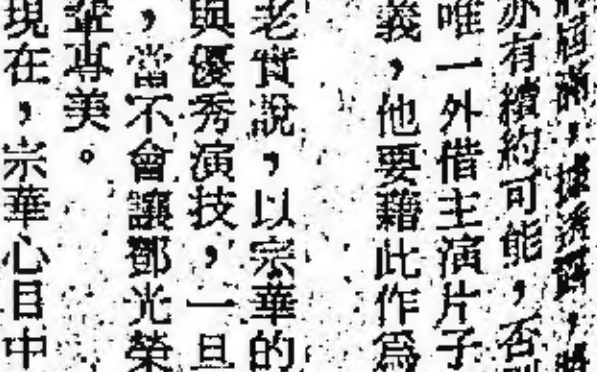 亦有續約可能，否
唯一外借主演片子
義，他要藉此作爲
老實說，以宗華的
與優秀演技，一旦
，當不會讓鄧光榮
輩專美。
現在，宗華心目中